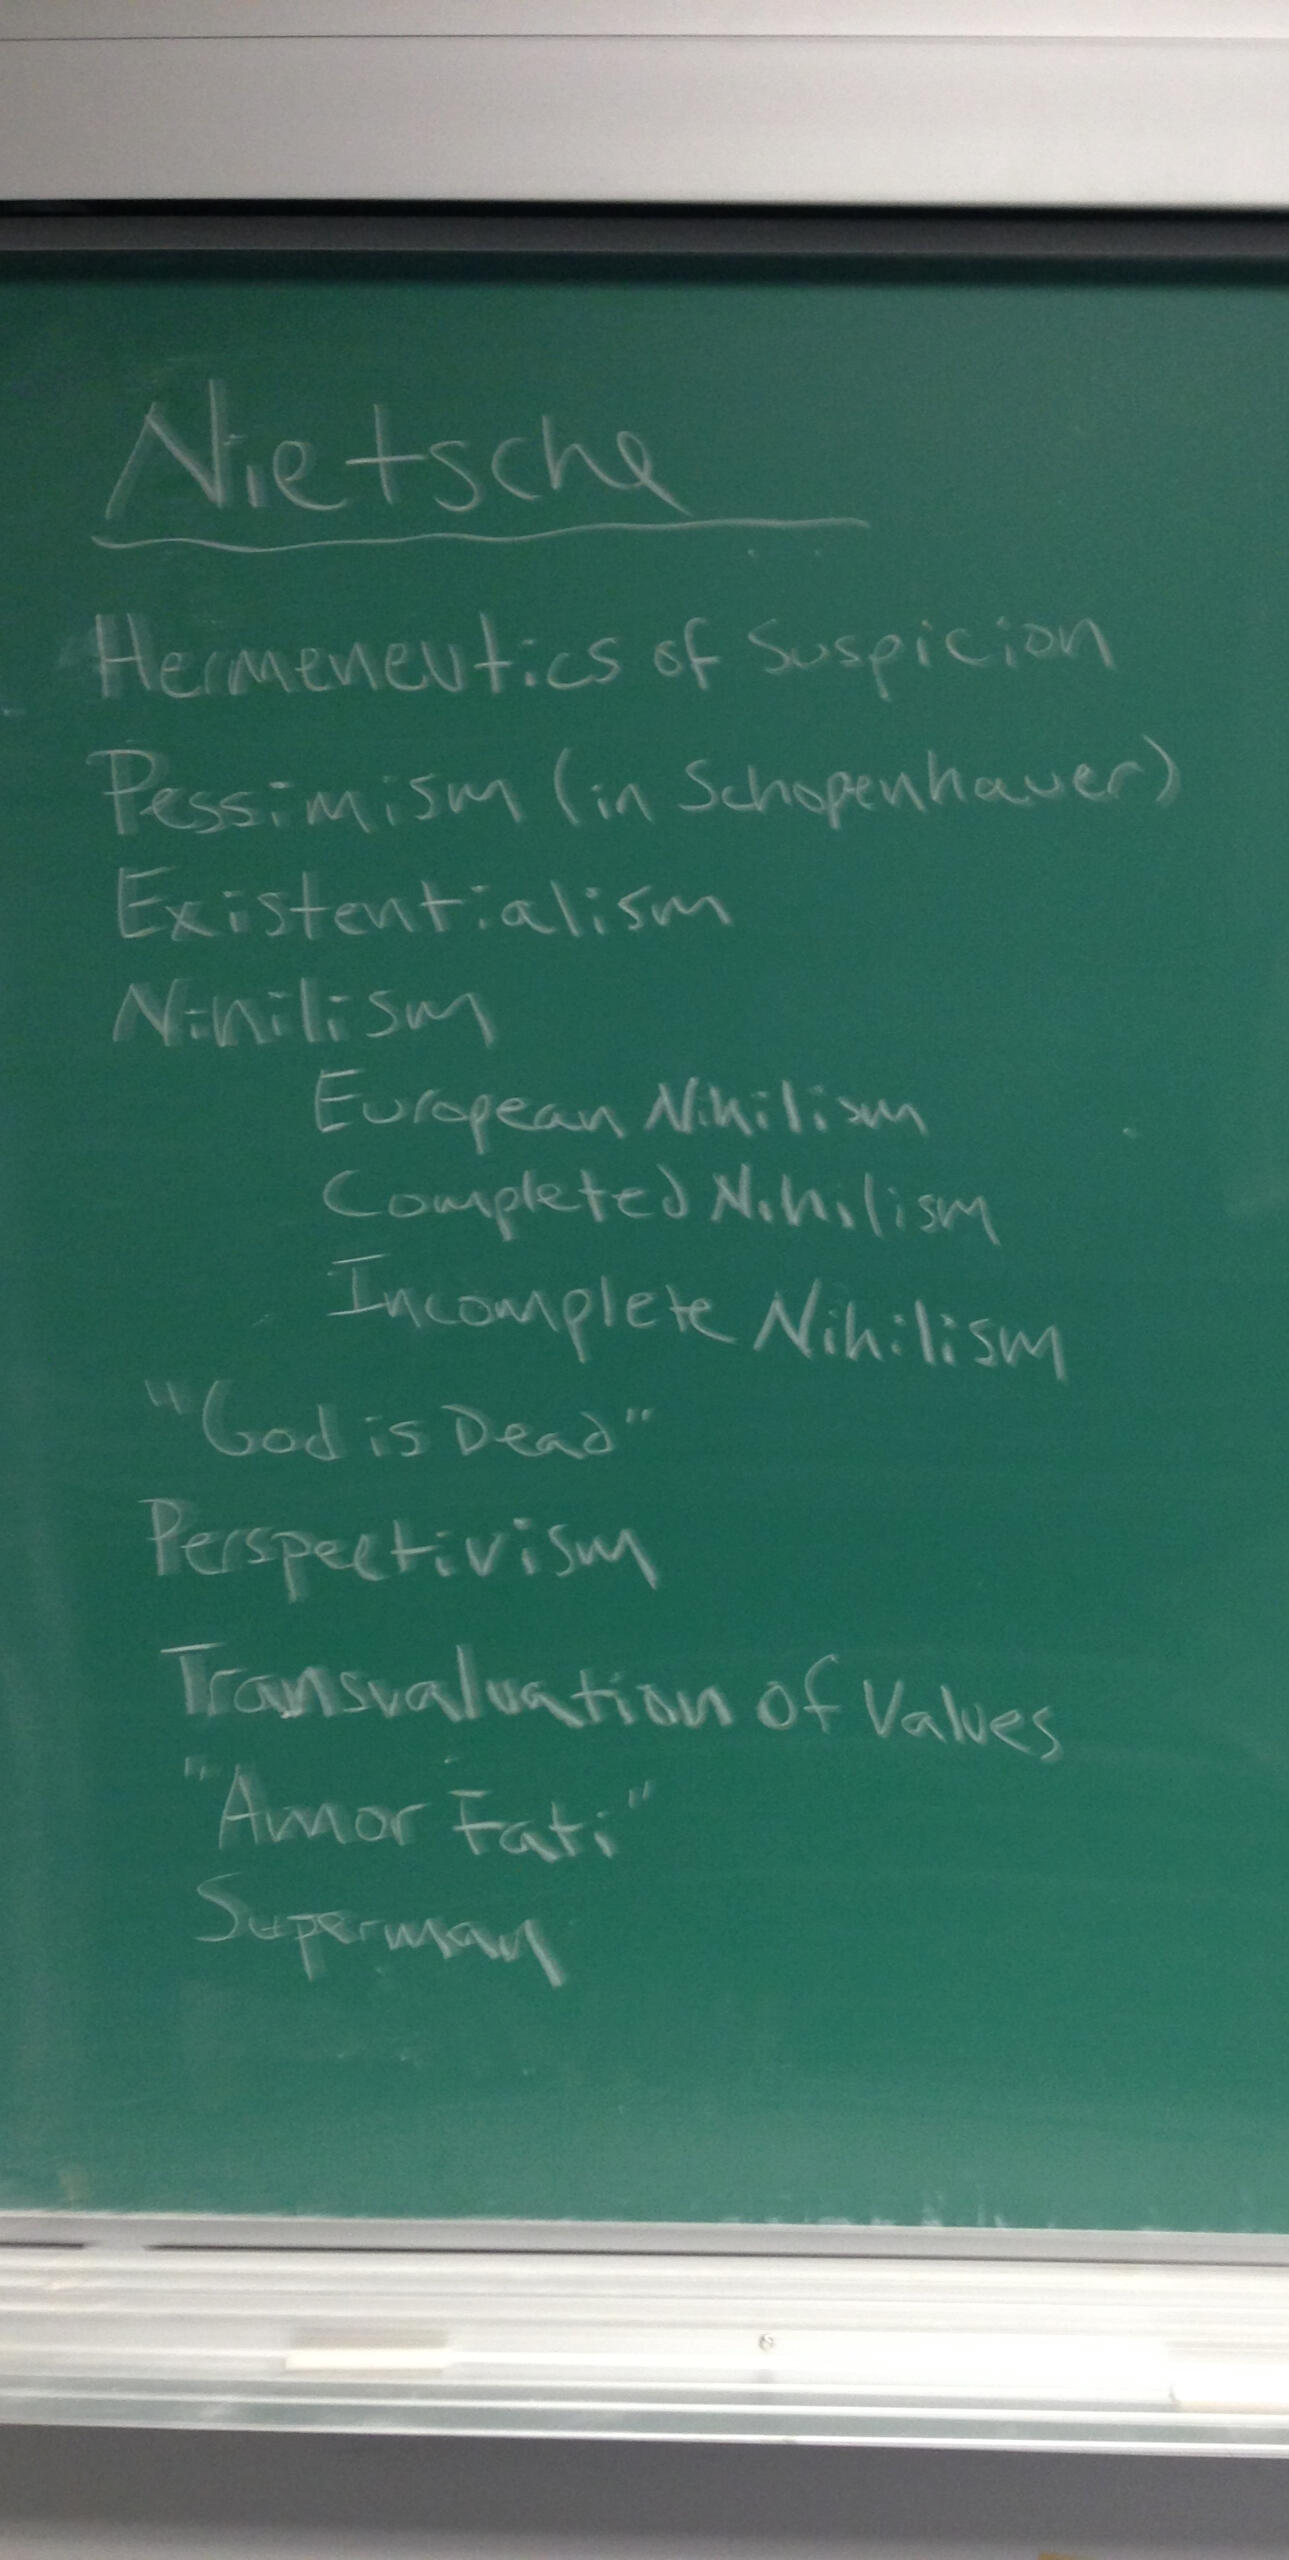 Nietsche
Hermeneutics of Suspicion
Pessimism (in Schopenhauer)
Existentialism
Nihilism
European Nihilism
Completed Nihilism
Incomplete Nihilism
"God is Dead"
Perspectivism
Transvaluation of Values
"Amor Fati"
Superman